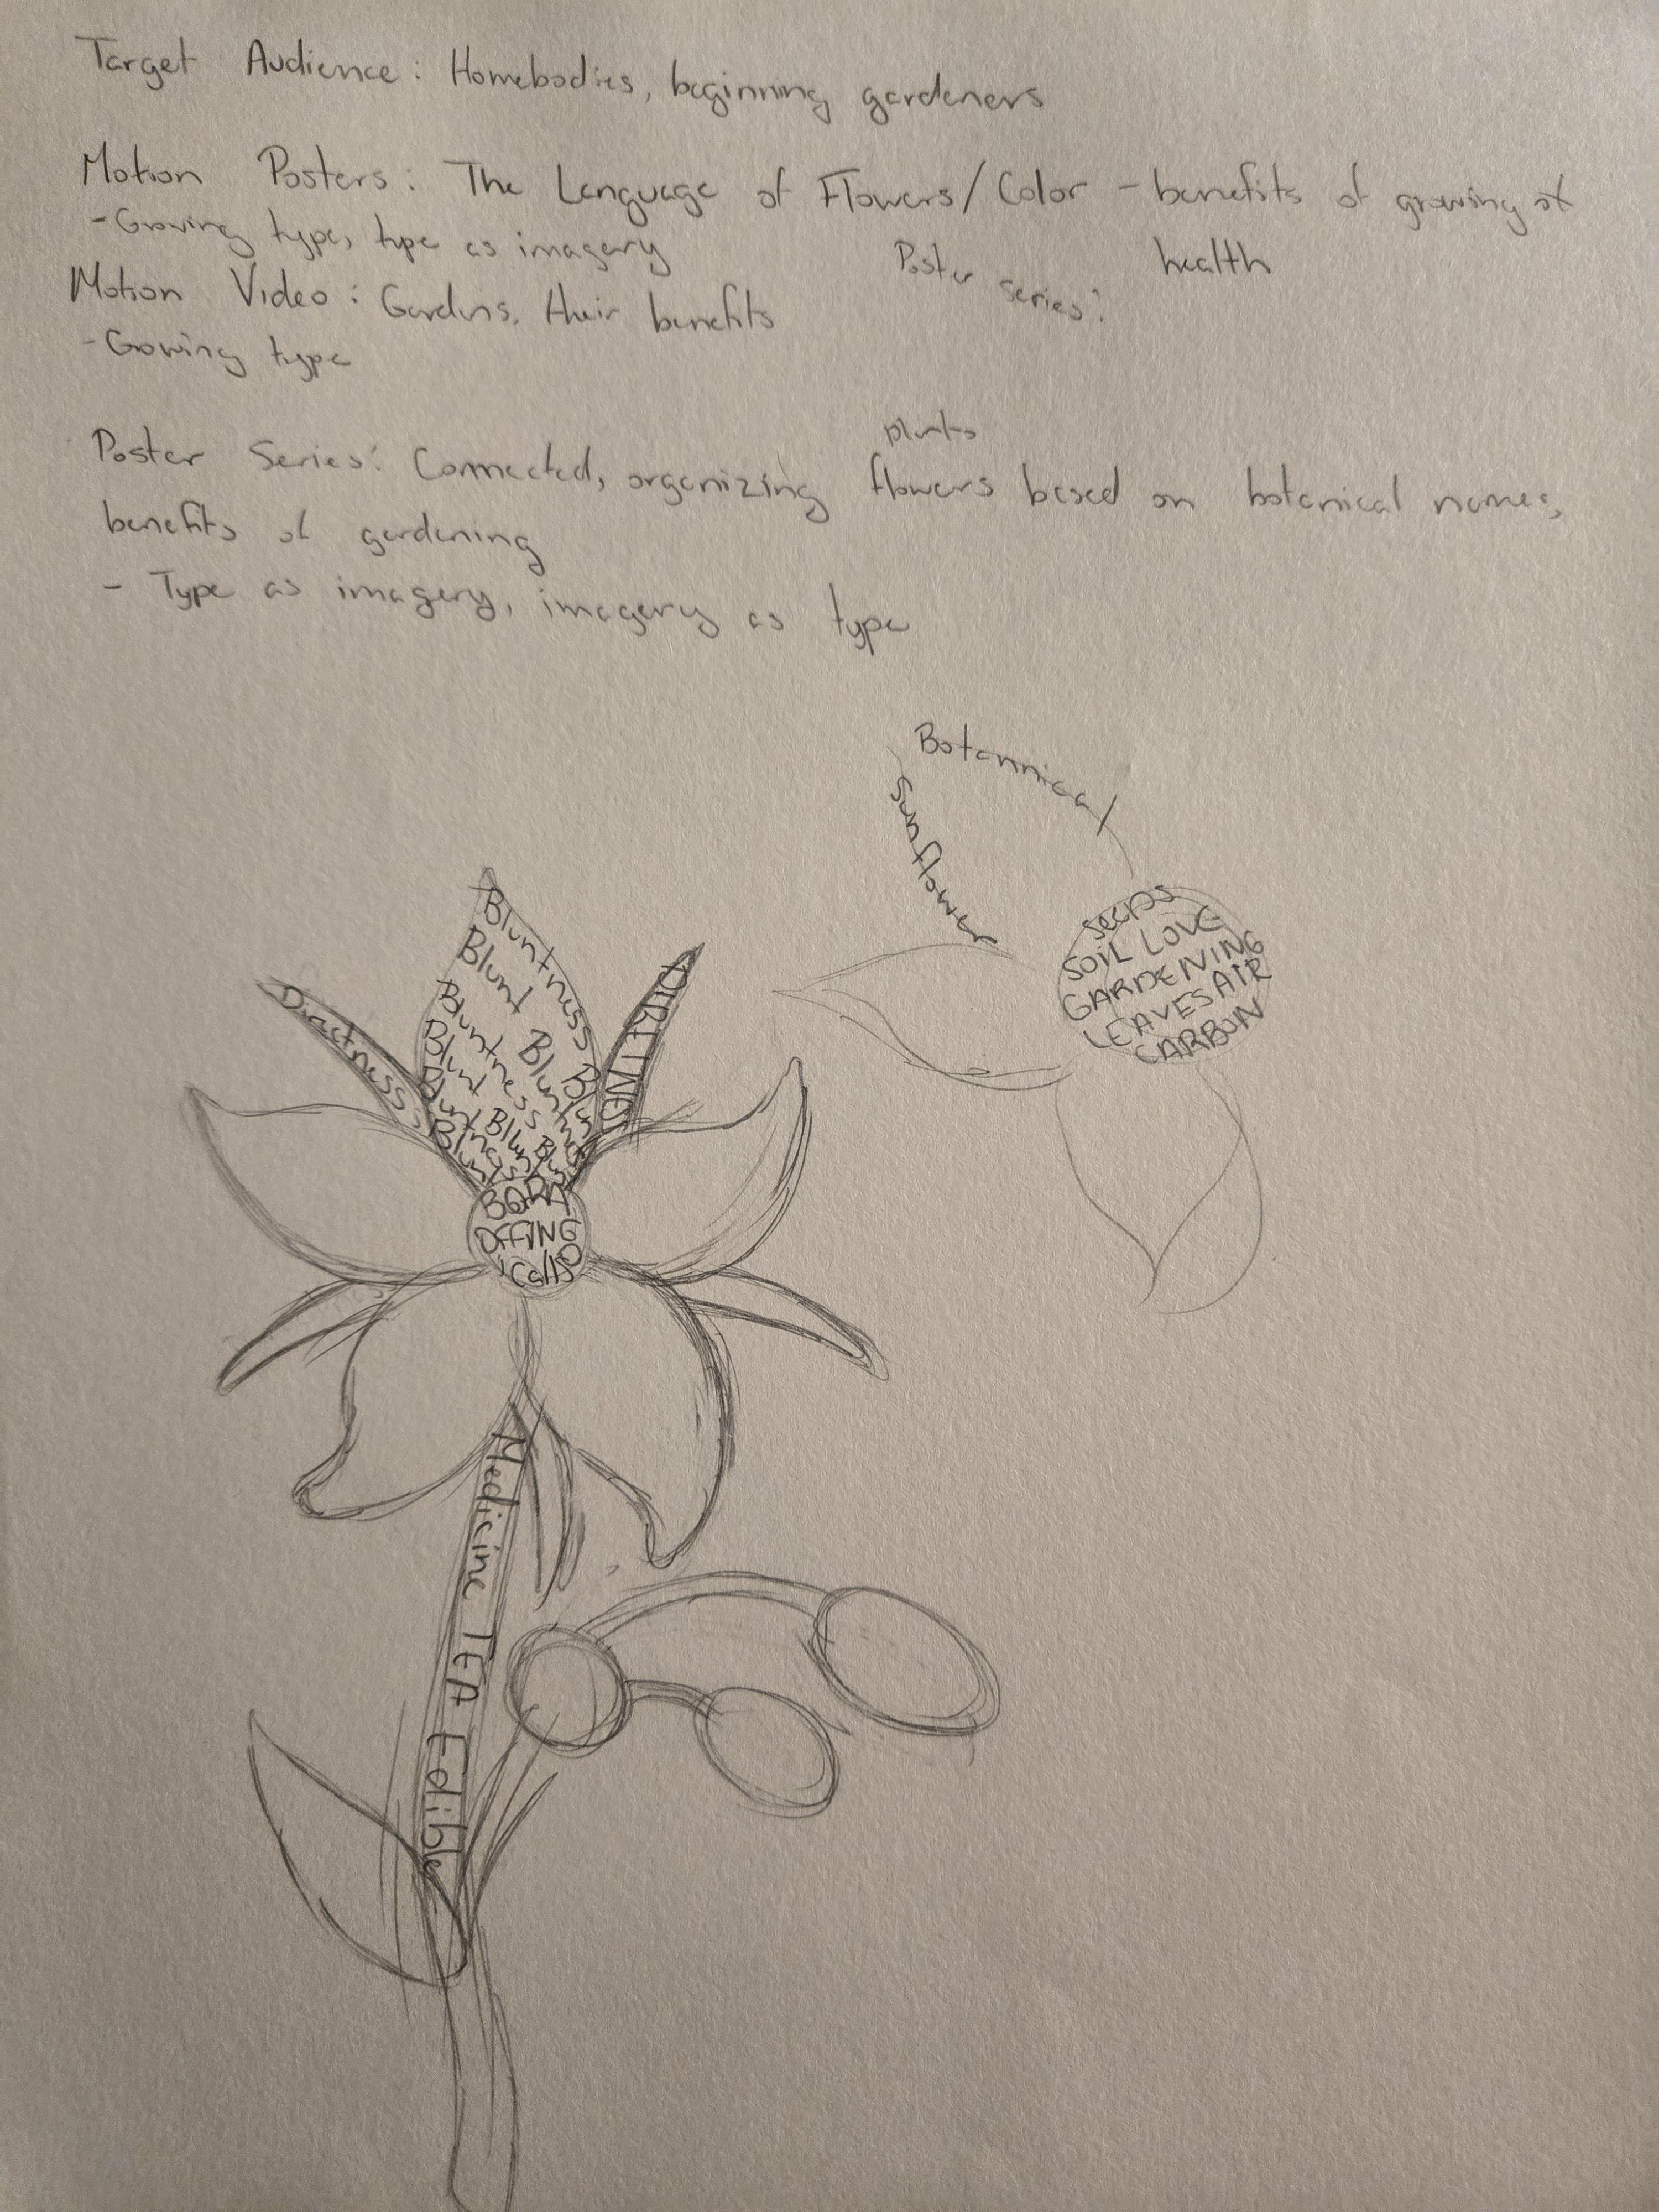 Target Audience: Homebodies, beginning gardeners
Motion Posters: The Language of Flowers/Color - benefits of growing of
-Growing type, type as imagery
Poster series? health
Motion Video: Gardens, their benefits
-Growing type
plants
Poster Series: Connected, organizing flowers based on botanical names,
benefits of gardening
- Type as imagery, imagery as type
Botannical
Sunflower
Seeds
SOIL LOVE
GARDENING
LEAVES AIR
CARBON
Bluntness
Blunt Bluntness
Bluntness Blunt
Blunt Blunt
Bluntness
Blunt
Directness
OFFING
Medicine TEA Edible